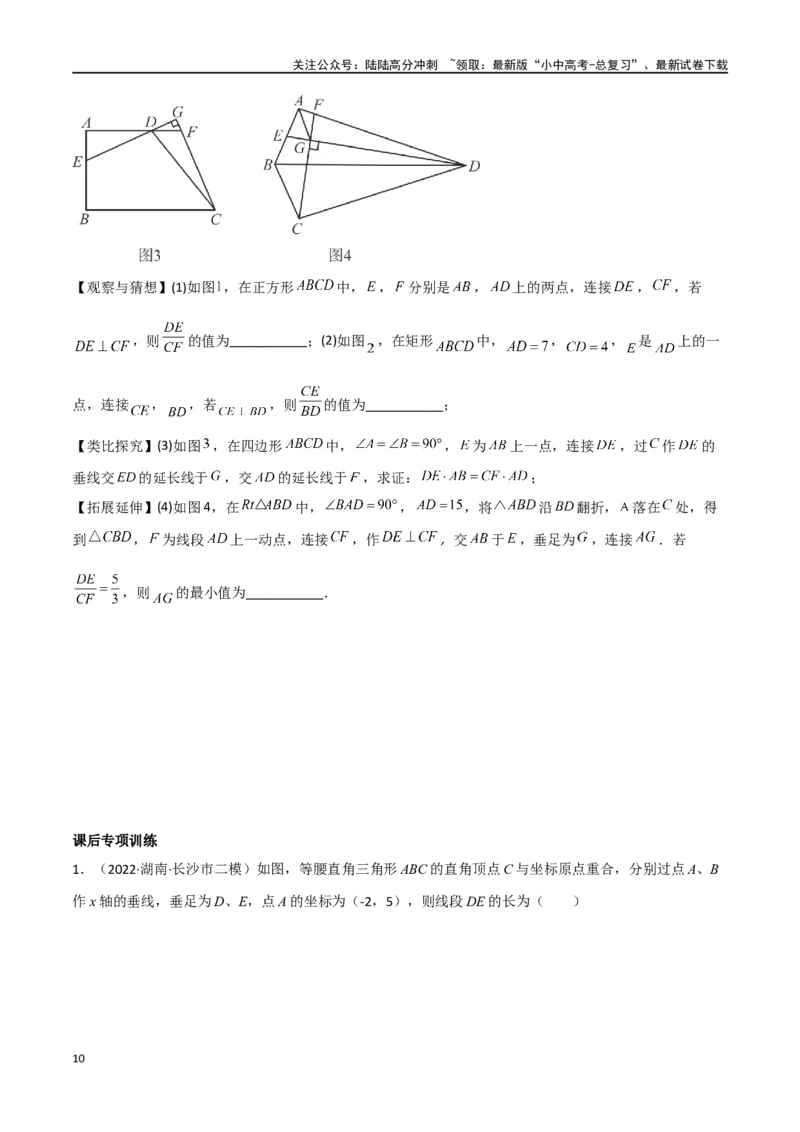 关注公众号：陆陆高分冲刺 ~领取：最新版“小中高考-总复习”、最新试卷下载
A D G F E B C
图3
A F E G B D C
图4
【观察与猜想】(1)如图1，在正方形ABCD中，E，F分别是AB，AD上的两点，连接DE，CF，若
DE⊥CF，则DE/CF的值为___________；(2)如图2，在矩形ABCD中，AD=7，CD=4，E是AD上的一
点，连接CE，BD，若CE⊥BD，则CE/BD的值为___________；
【类比探究】(3)如图3，在四边形ABCD中，∠A=∠B=90°，E为AB上一点，连接DE，过C作DE的
垂线交ED的延长线于G，交AD的延长线于F，求证：DE·AB=CF·AD；
【拓展延伸】(4)如图4，在Rt△ABD中，∠BAD=90°，AD=15，将△ABD沿BD翻折，A落在C处，得
到△CBD，F为线段AD上一动点，连接CF，作DE⊥CF，交AB于E，垂足为G，连接AG．若
DE/CF=5/3，则AG的最小值为___________．
课后专项训练
1．（2022·湖南·长沙市二模）如图，等腰直角三角形ABC的直角顶点C与坐标原点重合，分别过点A、B
作x轴的垂线，垂足为D、E，点A的坐标为（-2，5），则线段DE的长为（ ）
10